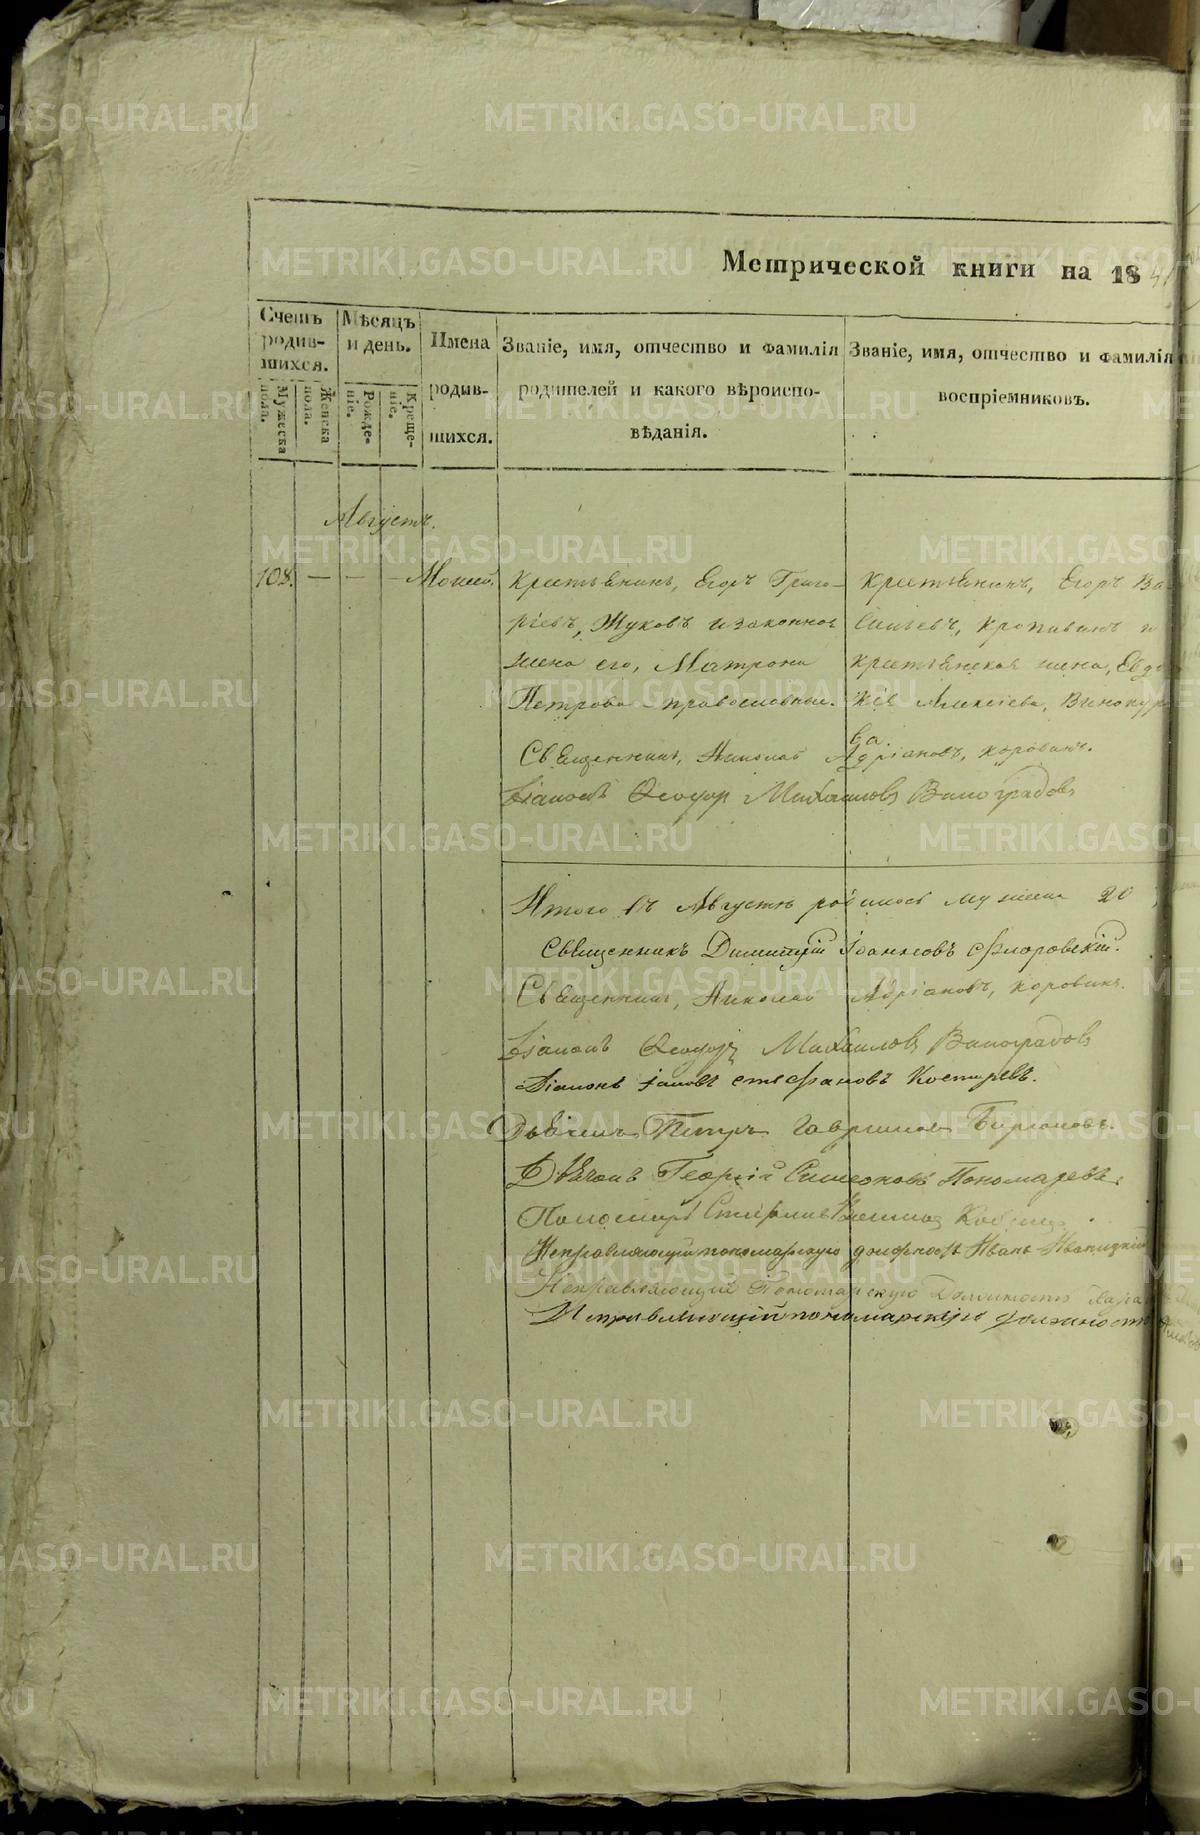 Метрической книги на 1841
Счетъ родив-шихся.
Мужеска пола.
Женска пола.
Мѣсяцъ и день.
Рожде-ніе.
Креще-ніе.
Имена родив-шихся.
Званіе, имя, отчество и фамилія
родителей и какого вѣроиспо-
вѣданія.
Званіе, имя, отчество и фамилія
воспріемниковъ.
Августъ.
108. — — — Моисей.
Крестьянинъ, Егоръ Григо-
рьевъ, Жуковъ и законная
жена его, Матрона
Петрова православные.
Крестьянинъ, Егоръ Ва-
сильевъ, Кропивинъ и
крестьянская жена, Евдо
кія Алексіева, Винокур
ва.
Священникъ, Николай Адріановъ, Коровинъ.
Діаконъ Ѳеодоръ Михайловъ Виноградовъ
Итого въ Августѣ родилось мужеска 20
Священникъ Димитрій Іоанновъ Флоровскій.
Священникъ, Николай Адріановъ, Коровинъ.
Діаконъ Ѳеодоръ Михайловъ Виноградовъ
Діаконъ Іаковъ Стефановъ Костаревъ.
Дьячекъ Петръ Гавриловъ
Дьячекъ Георгій Симеоновъ Пономаревъ
Пономарь Стефанъ
Исправляющій пономарскую должность Иванъ
Исправляющій Пономарскую Должность
Исправляющій пономарскую должность
METRIKI.GASO-URAL.RU